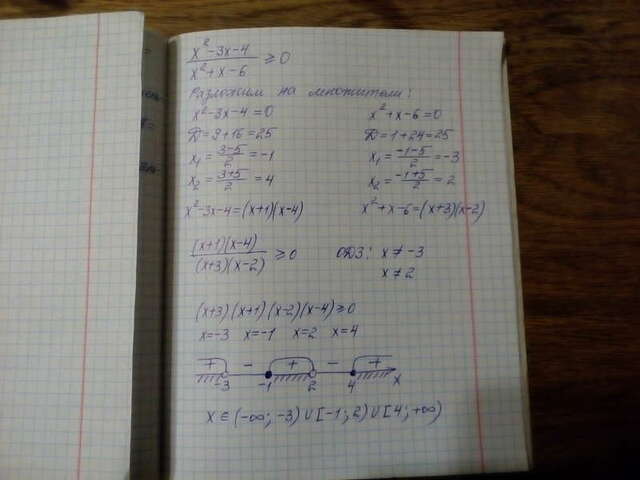 x²-3x-4 / x²+x-6 ≥ 0
Разложим на множители:
x²-3x-4=0
D=9+16=25
x₁ = 3-5/2 = -1
x₂ = 3+5/2 = 4
x²-3x-4=(x+1)(x-4)
x²+x-6=0
D=1+24=25
x₁ = -1-5/2 = -3
x₂ = -1+5/2 = 2
x²+x-6=(x+3)(x-2)
(x+1)(x-4) / (x+3)(x-2) ≥ 0
ОДЗ: x ≠ -3
x ≠ 2
(x+3)(x+1)(x-2)(x-4)≥0
x=-3 x=-1 x=2 x=4
+ - + - +
-3 -1 2 4 x
x ∈ (-∞; -3) ∪ [-1; 2) ∪ [4; +∞)